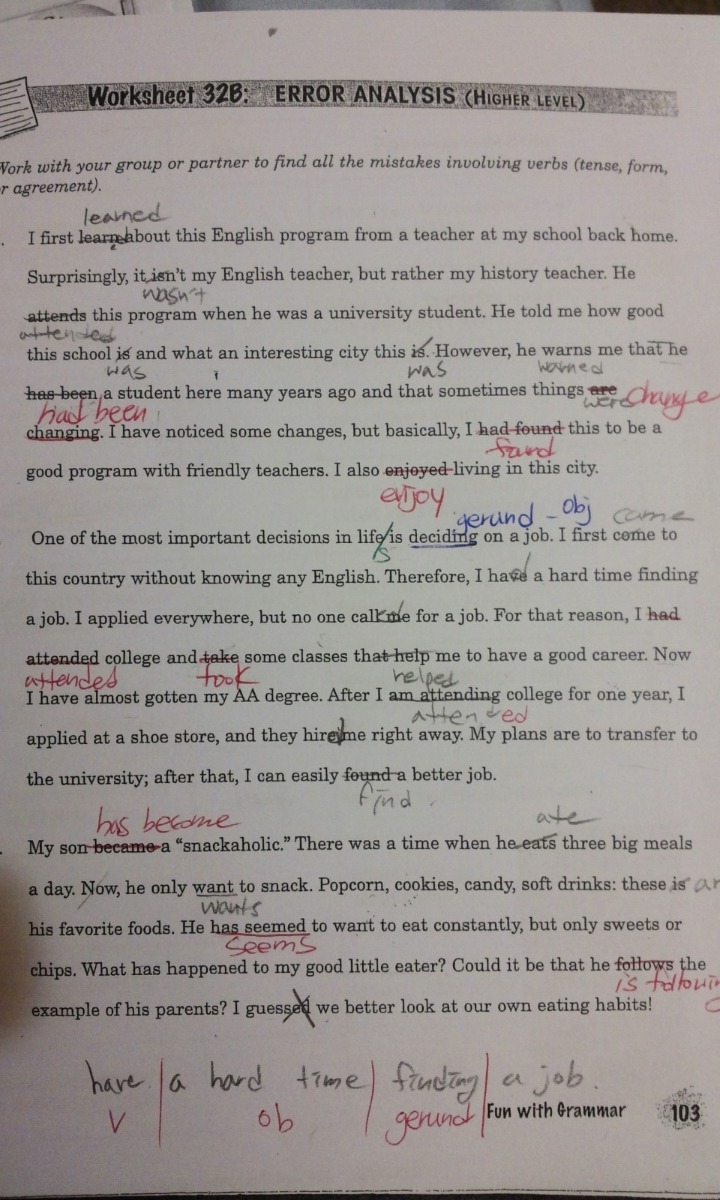 Worksheet 32B: ERROR ANALYSIS (HIGHER LEVEL)
Work with your group or partner to find all the mistakes involving verbs (tense, form,
or agreement).
learned
I first learn about this English program from a teacher at my school back home.
Surprisingly, it isn't my English teacher, but rather my history teacher. He
wasn't
attends this program when he was a university student. He told me how good
attended
this school is and what an interesting city this is. However, he warns me that he
was was warned
has been a student here many years ago and that sometimes things are change
had been were
changing. I have noticed some changes, but basically, I had found this to be a
found
good program with friendly teachers. I also enjoyed living in this city.
enjoy
gerund - obj came
One of the most important decisions in life is deciding on a job. I first come to
is
this country without knowing any English. Therefore, I have a hard time finding
a job. I applied everywhere, but no one call me for a job. For that reason, I had
attended college and take some classes that help me to have a good career. Now
attended took helped
I have almost gotten my AA degree. After I am attending college for one year, I
attended
applied at a shoe store, and they hire me right away. My plans are to transfer to
the university; after that, I can easily found a better job.
find
has become ate
My son became a "snackaholic." There was a time when he eats three big meals
a day. Now, he only want to snack. Popcorn, cookies, candy, soft drinks: these is
wants
his favorite foods. He has seemed to want to eat constantly, but only sweets or
seems
chips. What has happened to my good little eater? Could it be that he follows the
is
example of his parents? I guessed we better look at our own eating habits!
have a hard time finding a job.
V ob gerund
Fun with Grammar 103